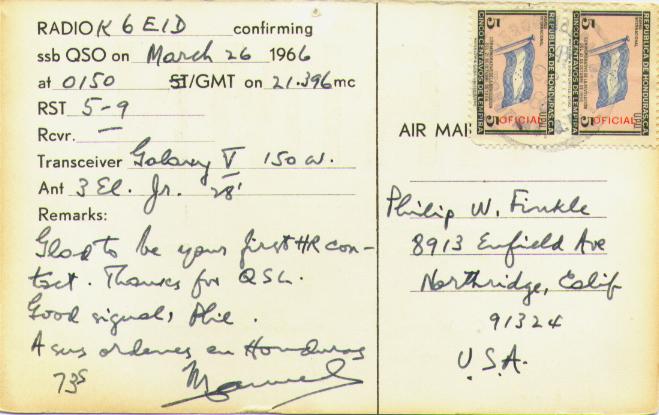 RADIO K6EID confirming
ssb QSO on March 26 1966
at 0150 ST/GMT on 21.396mc
RST 5-9
Rcvr. —
Transceiver Galaxy V 150 w.
Ant 3 El. Jr. 28'
Remarks:
Glad to be your first HR con-
tact. Thanks for QSL.
Good signal, Phil.
A sus ordenes en Honduras
73s Manuel
AIR MAIL
Philip W. Finkle
8913 Enfield Ave
Northridge, Calif
91324
U.S.A.
5 OFICIAL 5
REPUBLICA DE HONDURAS, C.A.
CINCO CENTAVOS DE LEMPIRA
UPU
5 OFICIAL 5
REPUBLICA DE HONDURAS, C.A.
CINCO CENTAVOS DE LEMPIRA
UPU